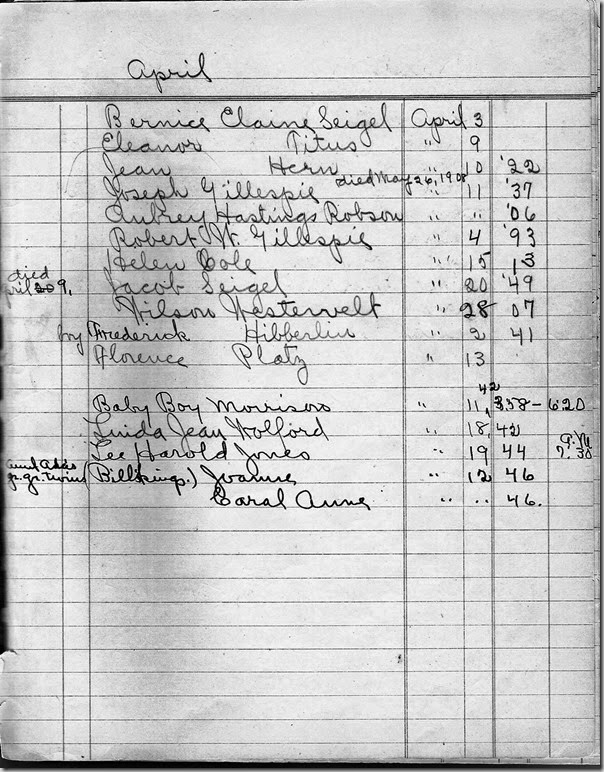 April
Bernice Elaine Seigel April 3
Eleanor Titus " 9
Jean Hern " 10 '22
died May 26, 1908
Joseph Gillespie " 11 '37
Aubrey Hastings Robson " " '06
Robert W. Gillespie " 4 '93
Helen Cole " 15 13
died
pril 20 9, Jacob Seigel " 20 '49
Wilson Westervelt " 28 07
by Frederick Hibberlin " 2 41
Florence Platz " 13
42
Baby Boy Morrison " 11, 358 - 6:20
Linda Jean Holford " 18, 42
A.M.
Lee Harold Jones " 19 44 7.30
aunt Adas
gr. gr. twins (Billkings.) Joanne " 12 46
Carol Anne " " 46.